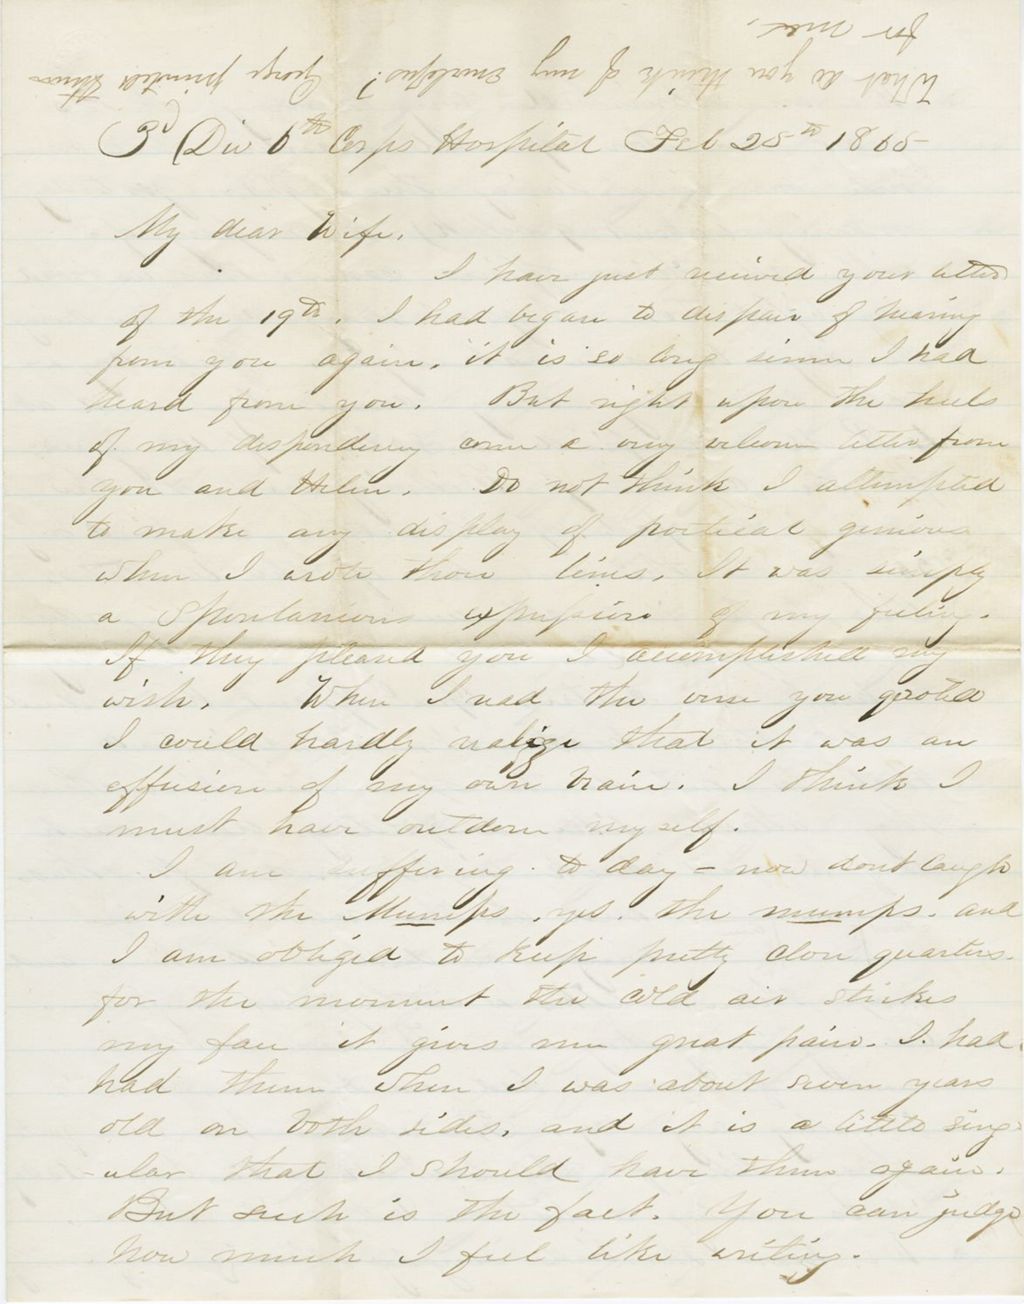 What do you think of my envelopes? George printed them
for me.
3d Div 6th Corps Hospital Feb 25th 1865
My dear Wife.
I have just recieved your letter
of the 19th. I had began to dispair of hearing
from you again, it is so long since I had
heard from you. But right upon the heels
of my despondency came a very welcom letter from
you and Helen. Do not think I attempted
to make any display of poetical genious
when I wrote those lines. It was simply
a spontaneous expression of my feeling.
If they pleased you I accomplished my
wish. When I read the verse you qouted
I could hardly realize that it was an
effusion of my own brain. I think I
must have outdone myself.
I am suffering to day - now dont laugh
with the Mumps. yes. the mumps. and
I am obliged to keep pretty close quarters.
for the moment the cold air strikes
my face it gives me great pain. I had
had them when I was about seven years
old on both sides, and it is a little sing
-ular that I should have them again.
But such is the fact. You can judge
how much I feel like writing.